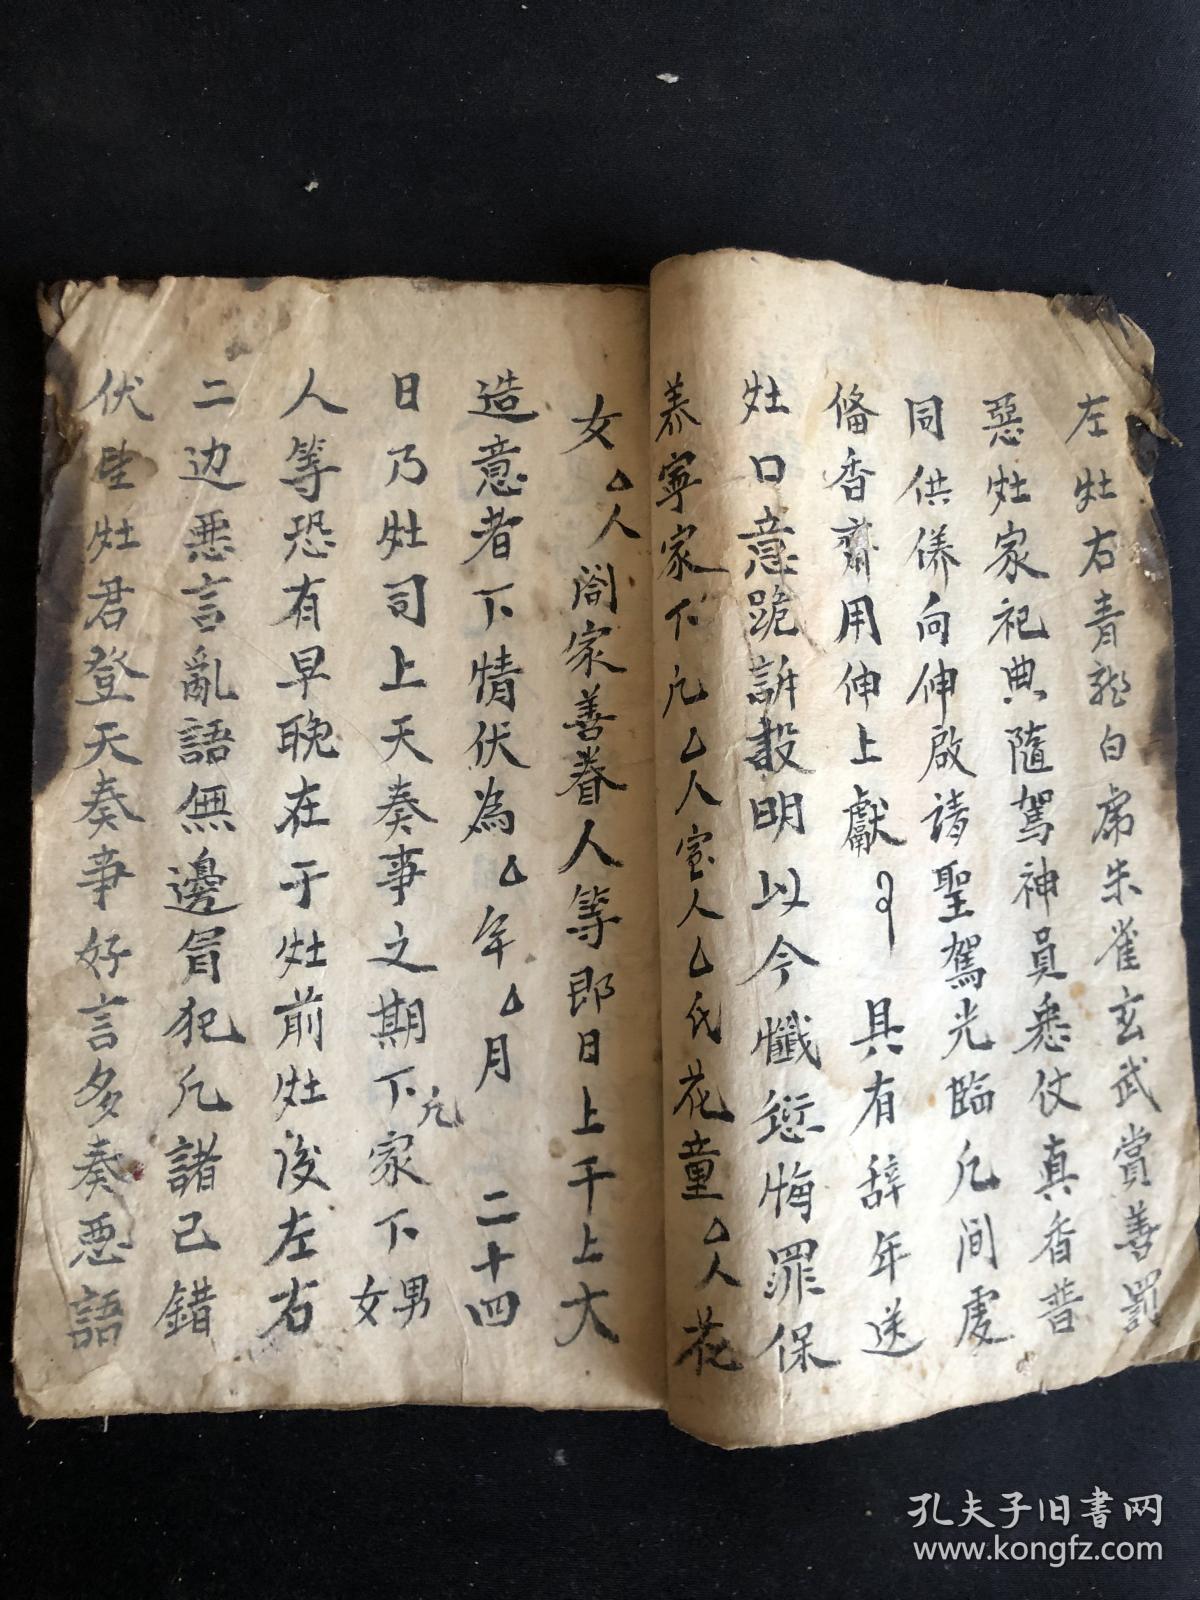 左灶右青龍白虎朱雀玄武賞善罰
惡灶家祀典隨駕神員悉仗真香普
同供俻向伸啟請聖駕光臨凡間處
俻香齋用伸上獻 具有辞年送
灶口意跪訴報明以今懺愆悔罪保
恭寧家下凡厶人室人厶氏花童厶人花
女厶人閤家善眷人等即日上千上大
造意者下情伏為厶年厶月 二十四
日乃灶司上天奏事之期下凡家下男女
人等恐有早晚在于灶前灶後左右
二边悪言亂語無邊冒犯凡諸己錯
伏望灶君登天奏事好言多奏悪語
孔夫子旧书网
www.kongfz.com